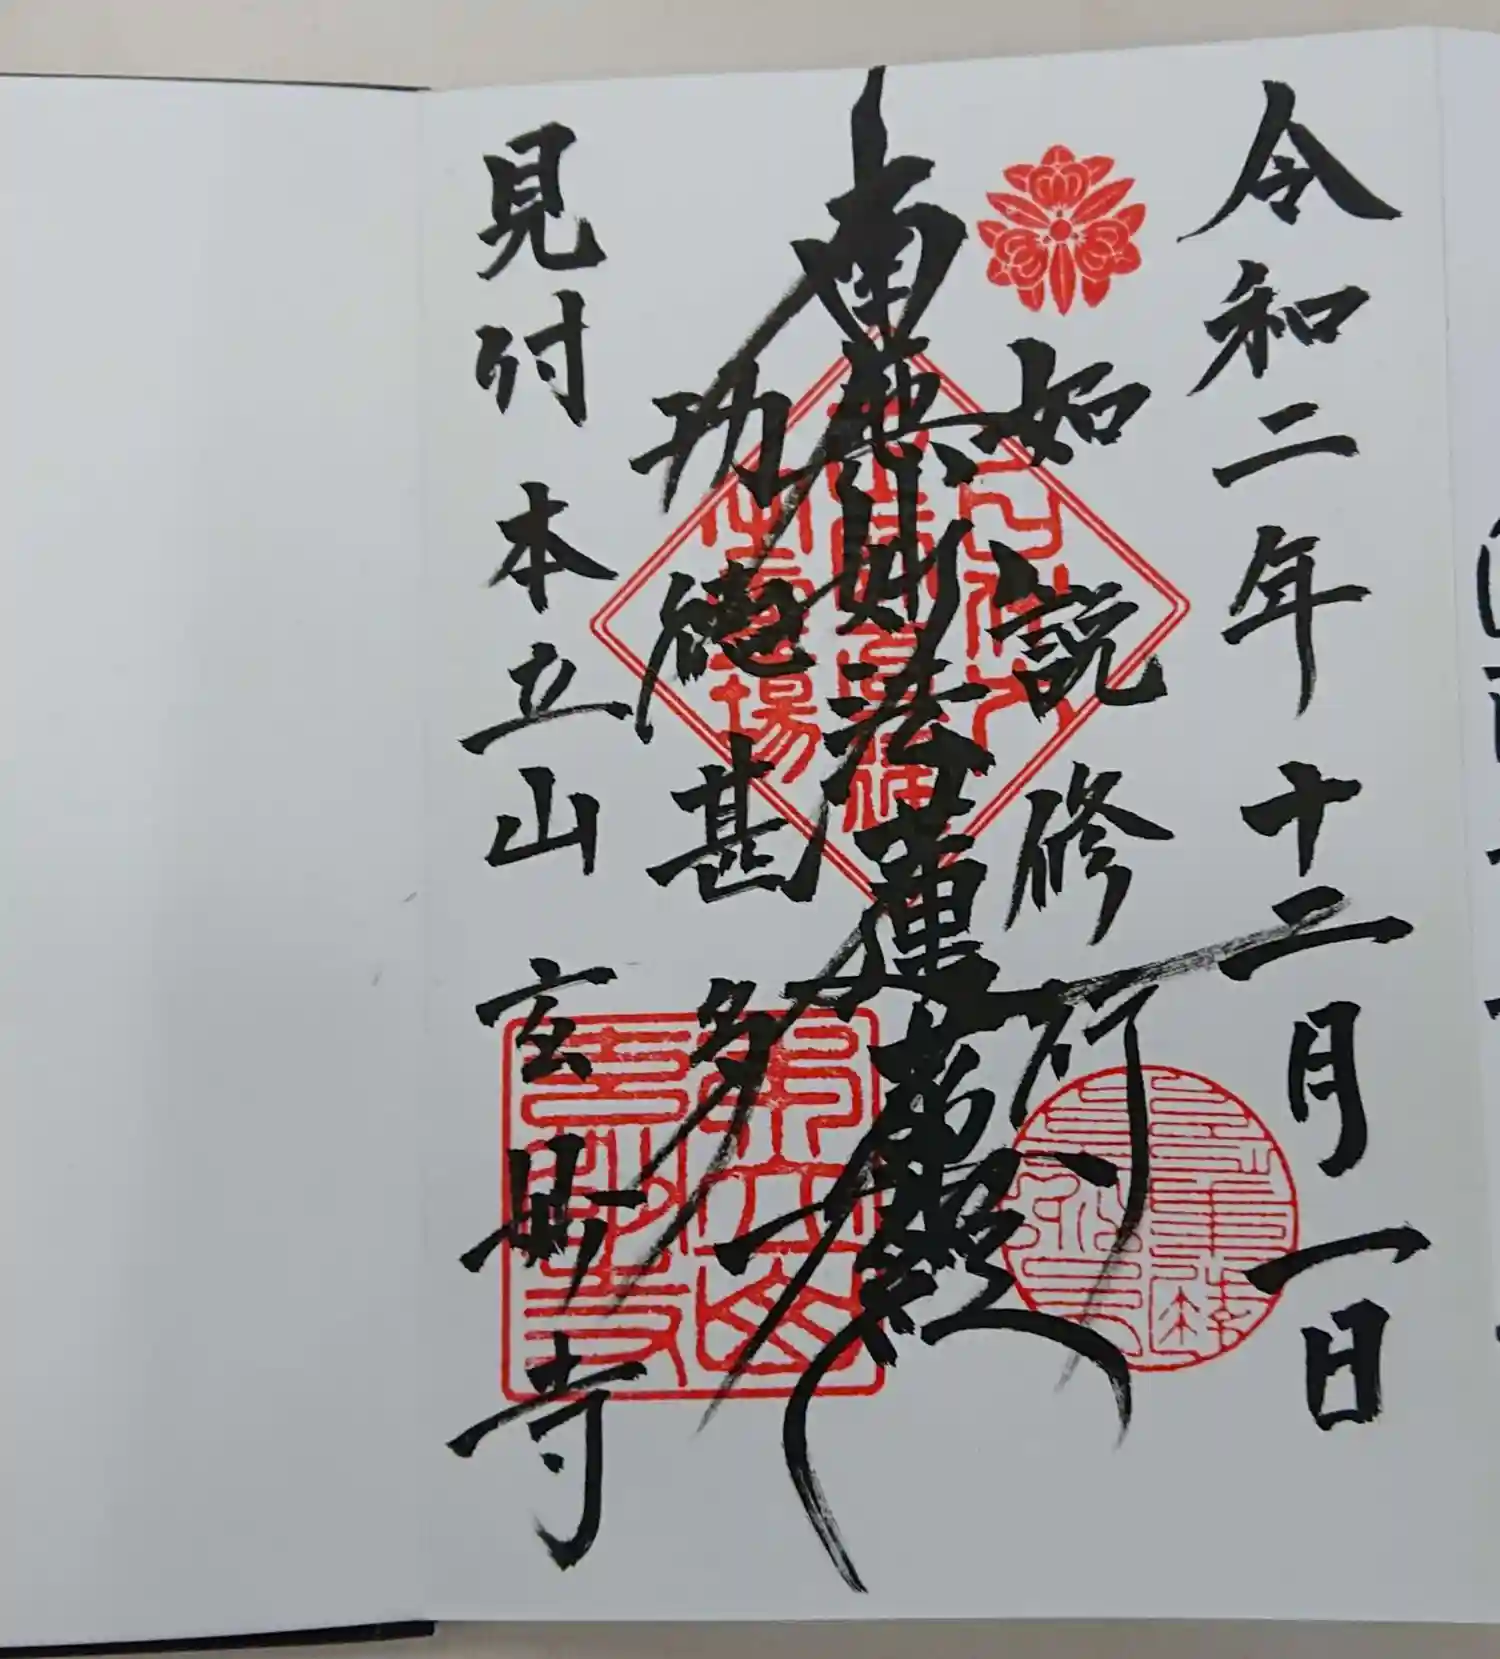 令和二年十二月一日
如説修行
南無妙法蓮華經
功徳甚多
見付 本立山 玄妙寺
本立山
玄妙寺